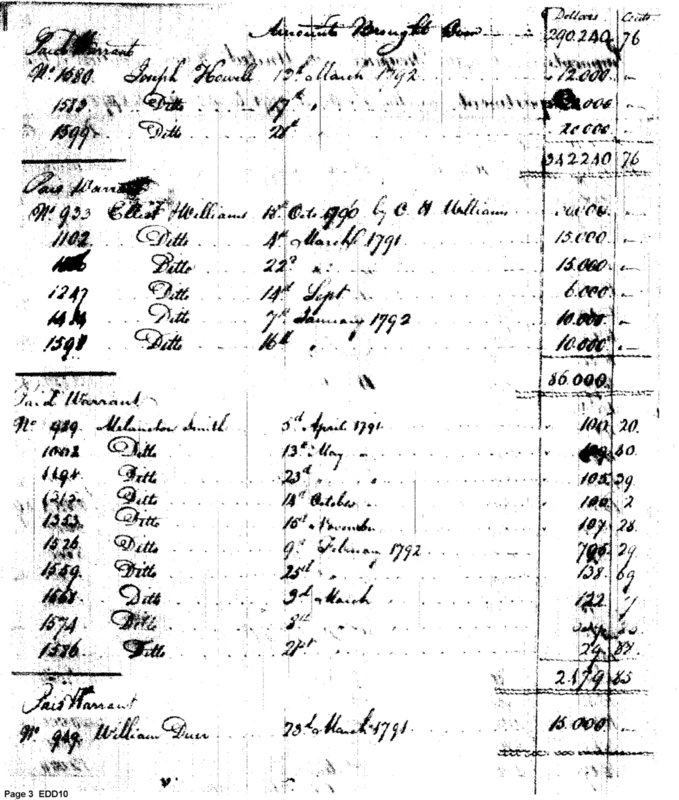 Dollars Cents
Amounts Brought Over 290.240 76
Paid Warrant
No. 1580 Joseph Howell 13th March 1792 12.000 —
1583 Ditto 17th " —
1599 Ditto 20.000 —
342240 76
Paid Warrant
No. 933 Elliot Williams 18th Octr 1790 by O H Williams —
1102 Ditto 4th March 1791 15.000 —
Ditto 22d " 15.000 —
1247 Ditto 14th Sept 6.000 —
Ditto 7th January 1792 10.000 —
1591 Ditto 16th " 10.000 —
86.000
Paid Warrant
No. 989 Melancton Smith 5th April 1791 20
Ditto 13th May 40
Ditto 23d " 105 39
Ditto 14th October " 2
1353 Ditto 15th November 107 28
1526 Ditto 9th February 1792 29
1559 Ditto 25th " 138 69
1568 Ditto 3d March 122
1574 Ditto 8th "
1586 Ditto 21st " 29 87
2.179 85
Paid Warrant
No. 949 William Duer 23d March 1791 15.000 —
Page 3 EDD10